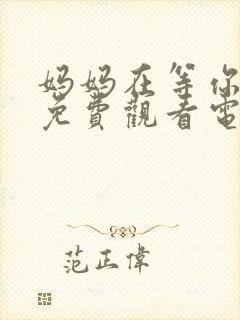 妈妈在等你
免費觀看電
范正偉